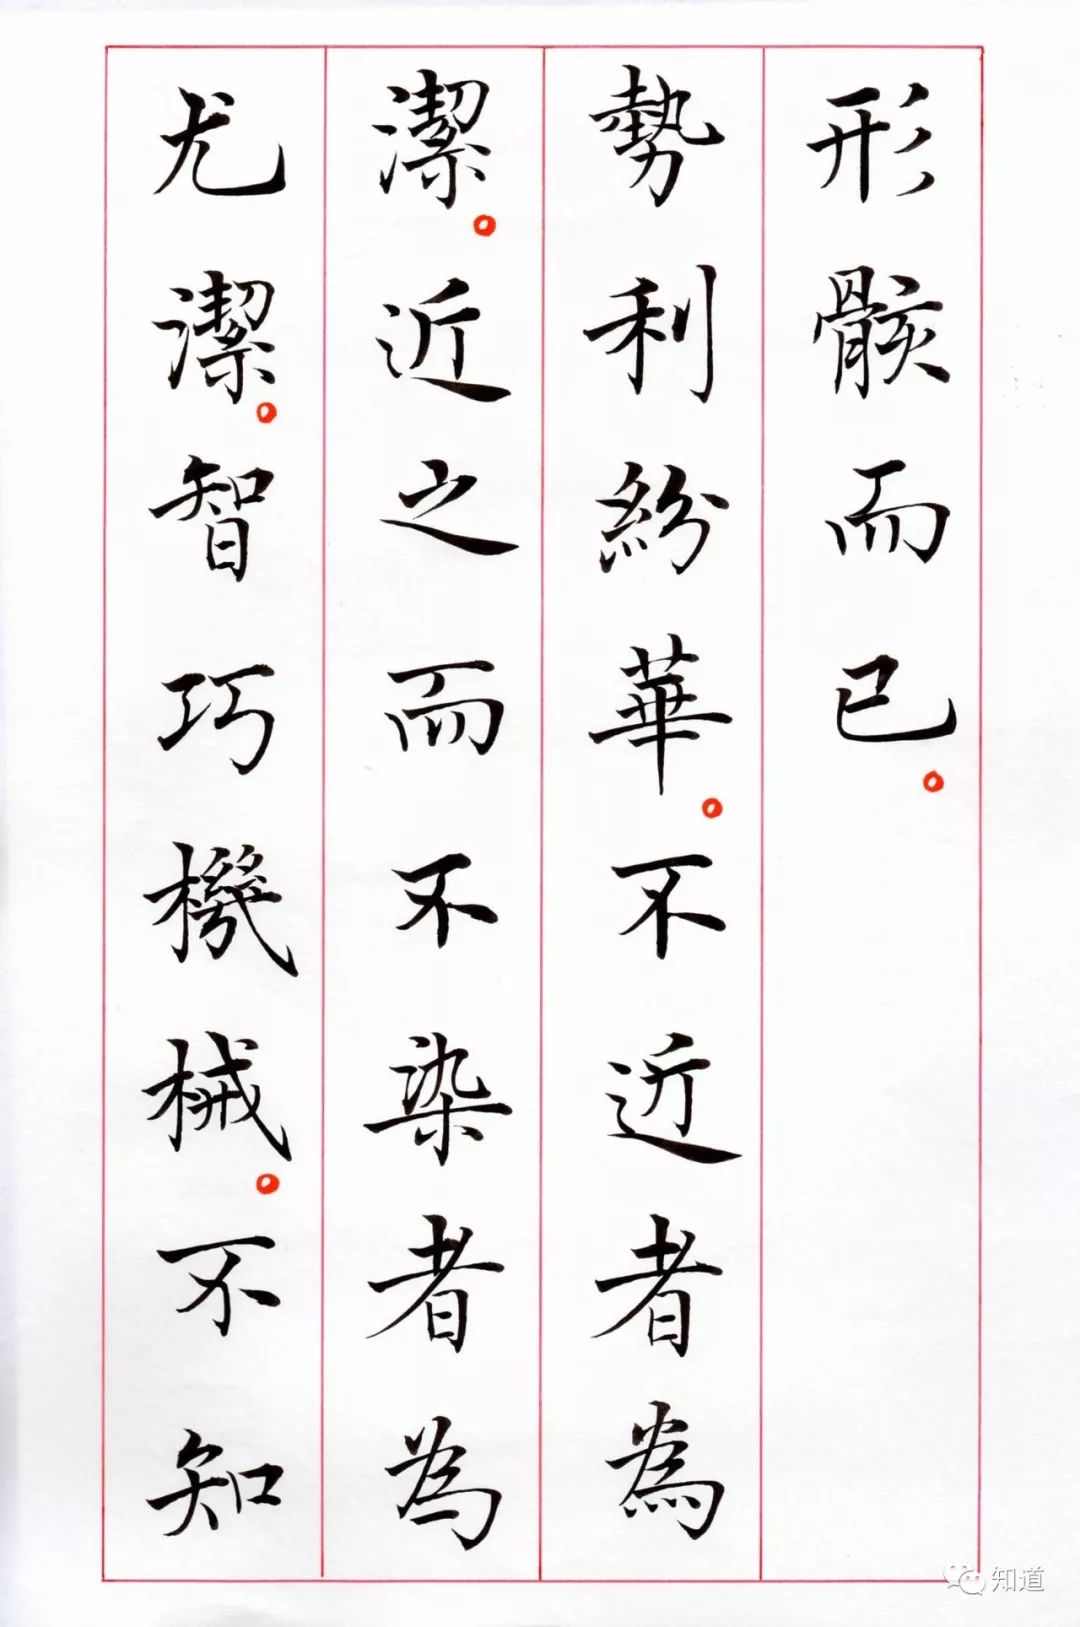 形骸而已。
勢利紛華。不近者為
潔。近之而不染者為
尤潔。智巧機械。不知
知道